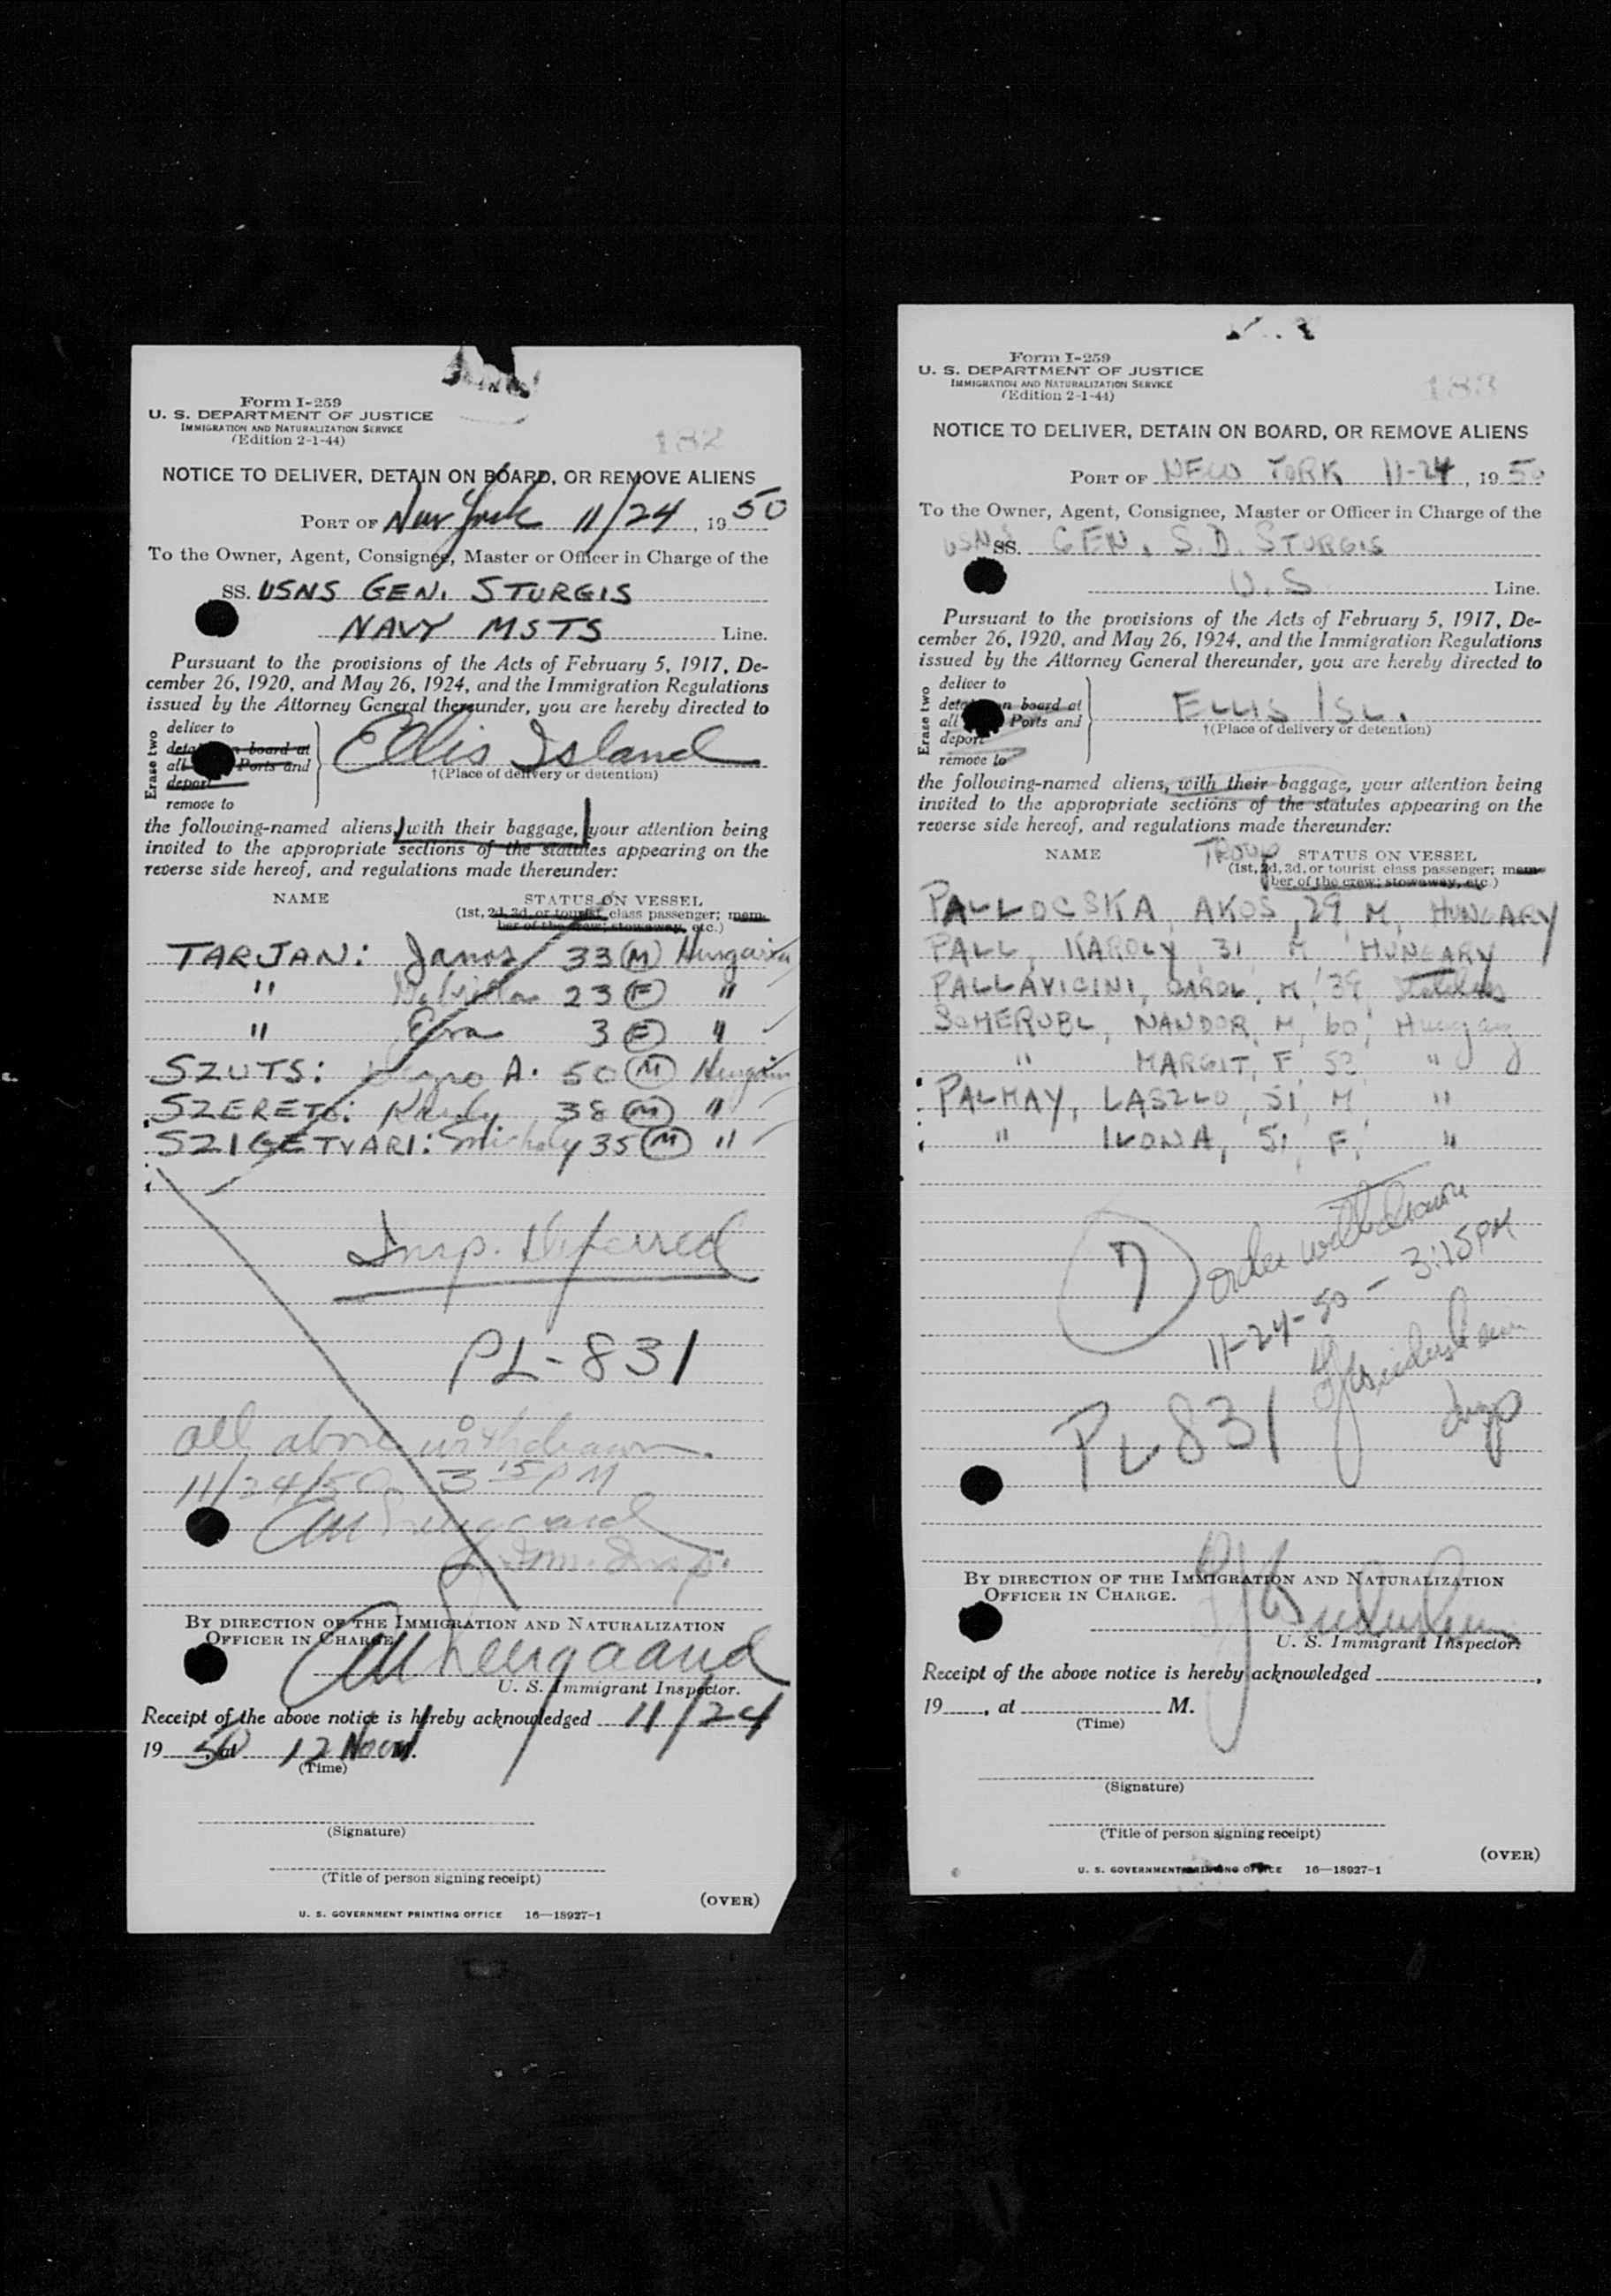 Form I-259
U. S. DEPARTMENT OF JUSTICE
IMMIGRATION AND NATURALIZATION SERVICE
(Edition 2-1-44)
182
NOTICE TO DELIVER, DETAIN ON BOARD, OR REMOVE ALIENS
PORT OF New York 11/24, 1950
To the Owner, Agent, Consignee, Master or Officer in Charge of the
SS. USNS GEN. STURGIS
NAVY MSTS Line.
Pursuant to the provisions of the Acts of February 5, 1917, De-
cember 26, 1920, and May 26, 1924, and the Immigration Regulations
issued by the Attorney General thereunder, you are hereby directed to
Erase two
deliver to
on board at
all Ports and
deport
remove to
Ellis Island
†(Place of delivery or detention)
the following-named aliens, with their baggage, your attention being
invited to the appropriate sections of the statutes appearing on the
reverse side hereof, and regulations made thereunder:
NAME STATUS ON VESSEL
(1st, 2d, 3d, or tourist class passenger; mem-
ber of the crew; stowaway, etc.)
TARJAN: Janos 33 (M)
" 23 (F) "
" 3 (F) "
SZUTS: A. 50 (M)
38 (M) "
SZIGETVARI: 35 (M) "
Insp. Deferred
PL-831
all above withdrawn.
11/24/50 3 15 PM
Imm. Insp.
BY DIRECTION OF THE IMMIGRATION AND NATURALIZATION
OFFICER IN CHARGE.
U. S. Immigrant Inspector.
Receipt of the above notice is hereby acknowledged 11/24
1950, at 12 Noon M.
(Time)
(Signature)
(Title of person signing receipt)
(OVER)
U. S. GOVERNMENT PRINTING OFFICE 16—18927-1
Form I-259
U. S. DEPARTMENT OF JUSTICE
IMMIGRATION AND NATURALIZATION SERVICE
(Edition 2-1-44)
183
NOTICE TO DELIVER, DETAIN ON BOARD, OR REMOVE ALIENS
PORT OF NEW YORK 11-24, 1950
To the Owner, Agent, Consignee, Master or Officer in Charge of the
USNS SS. GEN. S.D. STURGIS
U.S Line.
Pursuant to the provisions of the Acts of February 5, 1917, De-
cember 26, 1920, and May 26, 1924, and the Immigration Regulations
issued by the Attorney General thereunder, you are hereby directed to
Erase two
deliver to
on board at
all Ports and
deport
remove to
ELLIS ISL.
†(Place of delivery or detention)
the following-named aliens, with their baggage, your attention being
invited to the appropriate sections of the statutes appearing on the
reverse side hereof, and regulations made thereunder:
NAME TROOP STATUS ON VESSEL
(1st, 2d, 3d, or tourist class passenger; mem-
ber of the crew; stowaway, etc.)
PALLOCSKA, AKOS, 29, M, HUNGARY
PALL, KAROLY, 31, M HUNGARY
PALLAVICINI, M, 39,
NANDOR, M, 60, Hungary
" MARGIT, F "
PALMAY, LASZLO, 51, M "
" ILONA, 51, F, "
7
order withdrawn
11-24-50 - 3:15 PM
Insp
PL 831
BY DIRECTION OF THE IMMIGRATION AND NATURALIZATION
OFFICER IN CHARGE.
U. S. Immigrant Inspector.
Receipt of the above notice is hereby acknowledged
19, at M.
(Time)
(Signature)
(Title of person signing receipt)
(OVER)
U. S. GOVERNMENT PRINTING OFFICE 16—18927-1